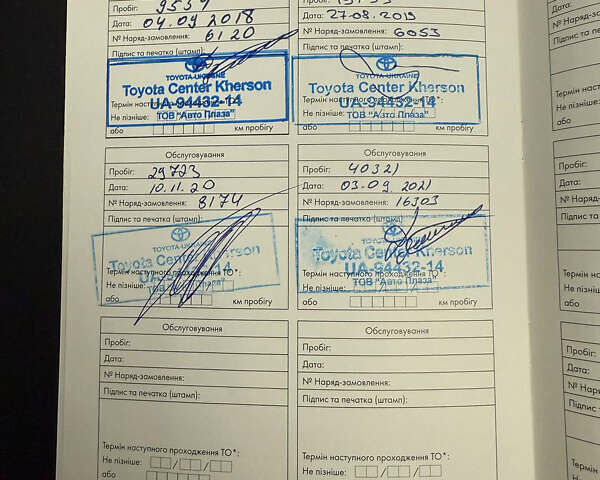 Пробіг: 9539
Дата: 04.09 2018
№ Наряд-замовлення: 6120
Підпис та печатка (штамп):
TOYOTA-UKRAINE
Toyota Center Kherson
UA-94432-14
ТОВ "Авто Плаза"
Термін
Не пізніше:
або км пробігу
Пробіг:
Дата: 27.08.2019
№ Наряд-замовлення: 6053
Підпис та печатка (штамп):
TOYOTA-UKRAINE
Toyota Center Kherson
UA-94432-14
ТОВ "Авто Плаза"
Не пізніше:
або км пробігу
Обслуговування
Пробіг: 29723
Дата: 10.11.20
№ Наряд-замовлення: 8174
Підпис та печатка (штамп):
TOYOTA-UKRAINE
Toyota Center Kherson
Термін наступного проходження ТО*:
Не пізніше:
або км пробігу
Обслуговування
Пробіг: 40321
Дата: 03.09.2021
№ Наряд-замовлення: 16303
Підпис та печатка (штамп):
Toyota Center Kherson
Термін наступного проходження ТО*:
UA-94432-14
Не пізніше:
ТОВ "Авто Плаза"
або км пробігу
Обслуговування
Пробіг:
Дата:
№ Наряд-замовлення:
Підпис та печатка (штамп):
Термін наступного проходження ТО*:
Не пізніше: / /
або км пробігу
Обслуговування
Пробіг:
Дата:
№ Наряд-замовлення:
Підпис та печатка (штамп):
Термін наступного проходження ТО*:
Не пізніше: / /
або км пробігу
Дата:
№ Наряд-
Підпис та
Термін на
Не пізніше
або
Пробіг:
Дата:
№ Наряд-
Підпис та
Термін
Не пізніше
або
Пробіг
Дата:
№ Наряд
Підпис